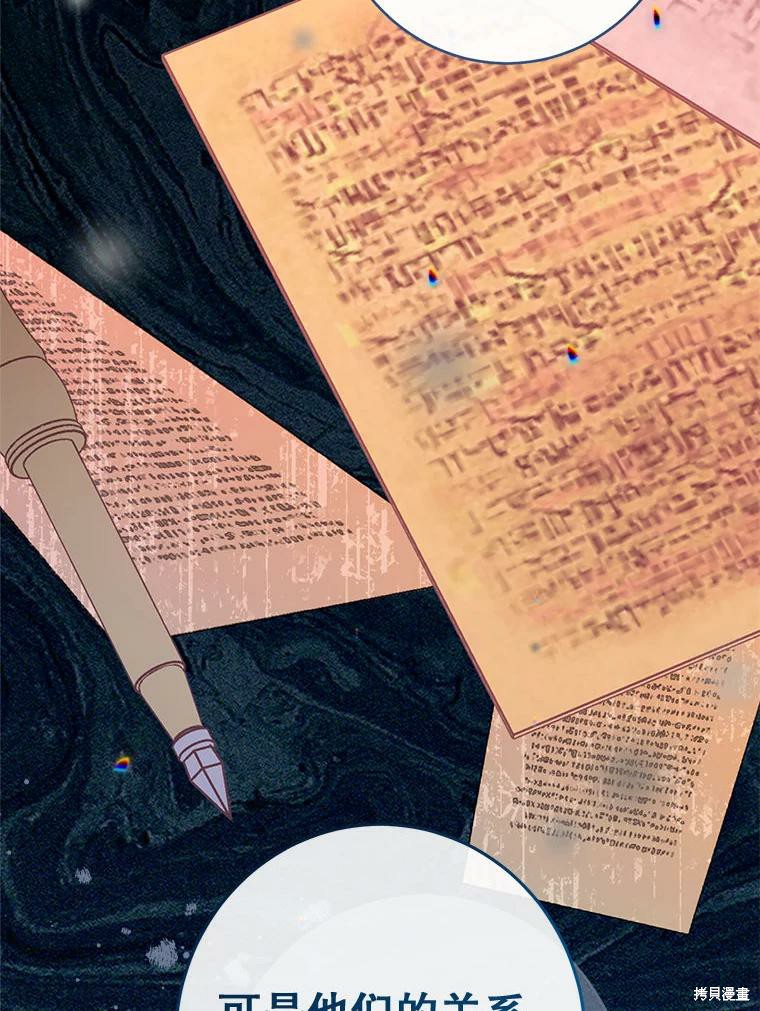 可是他们的关系
拷贝漫畫